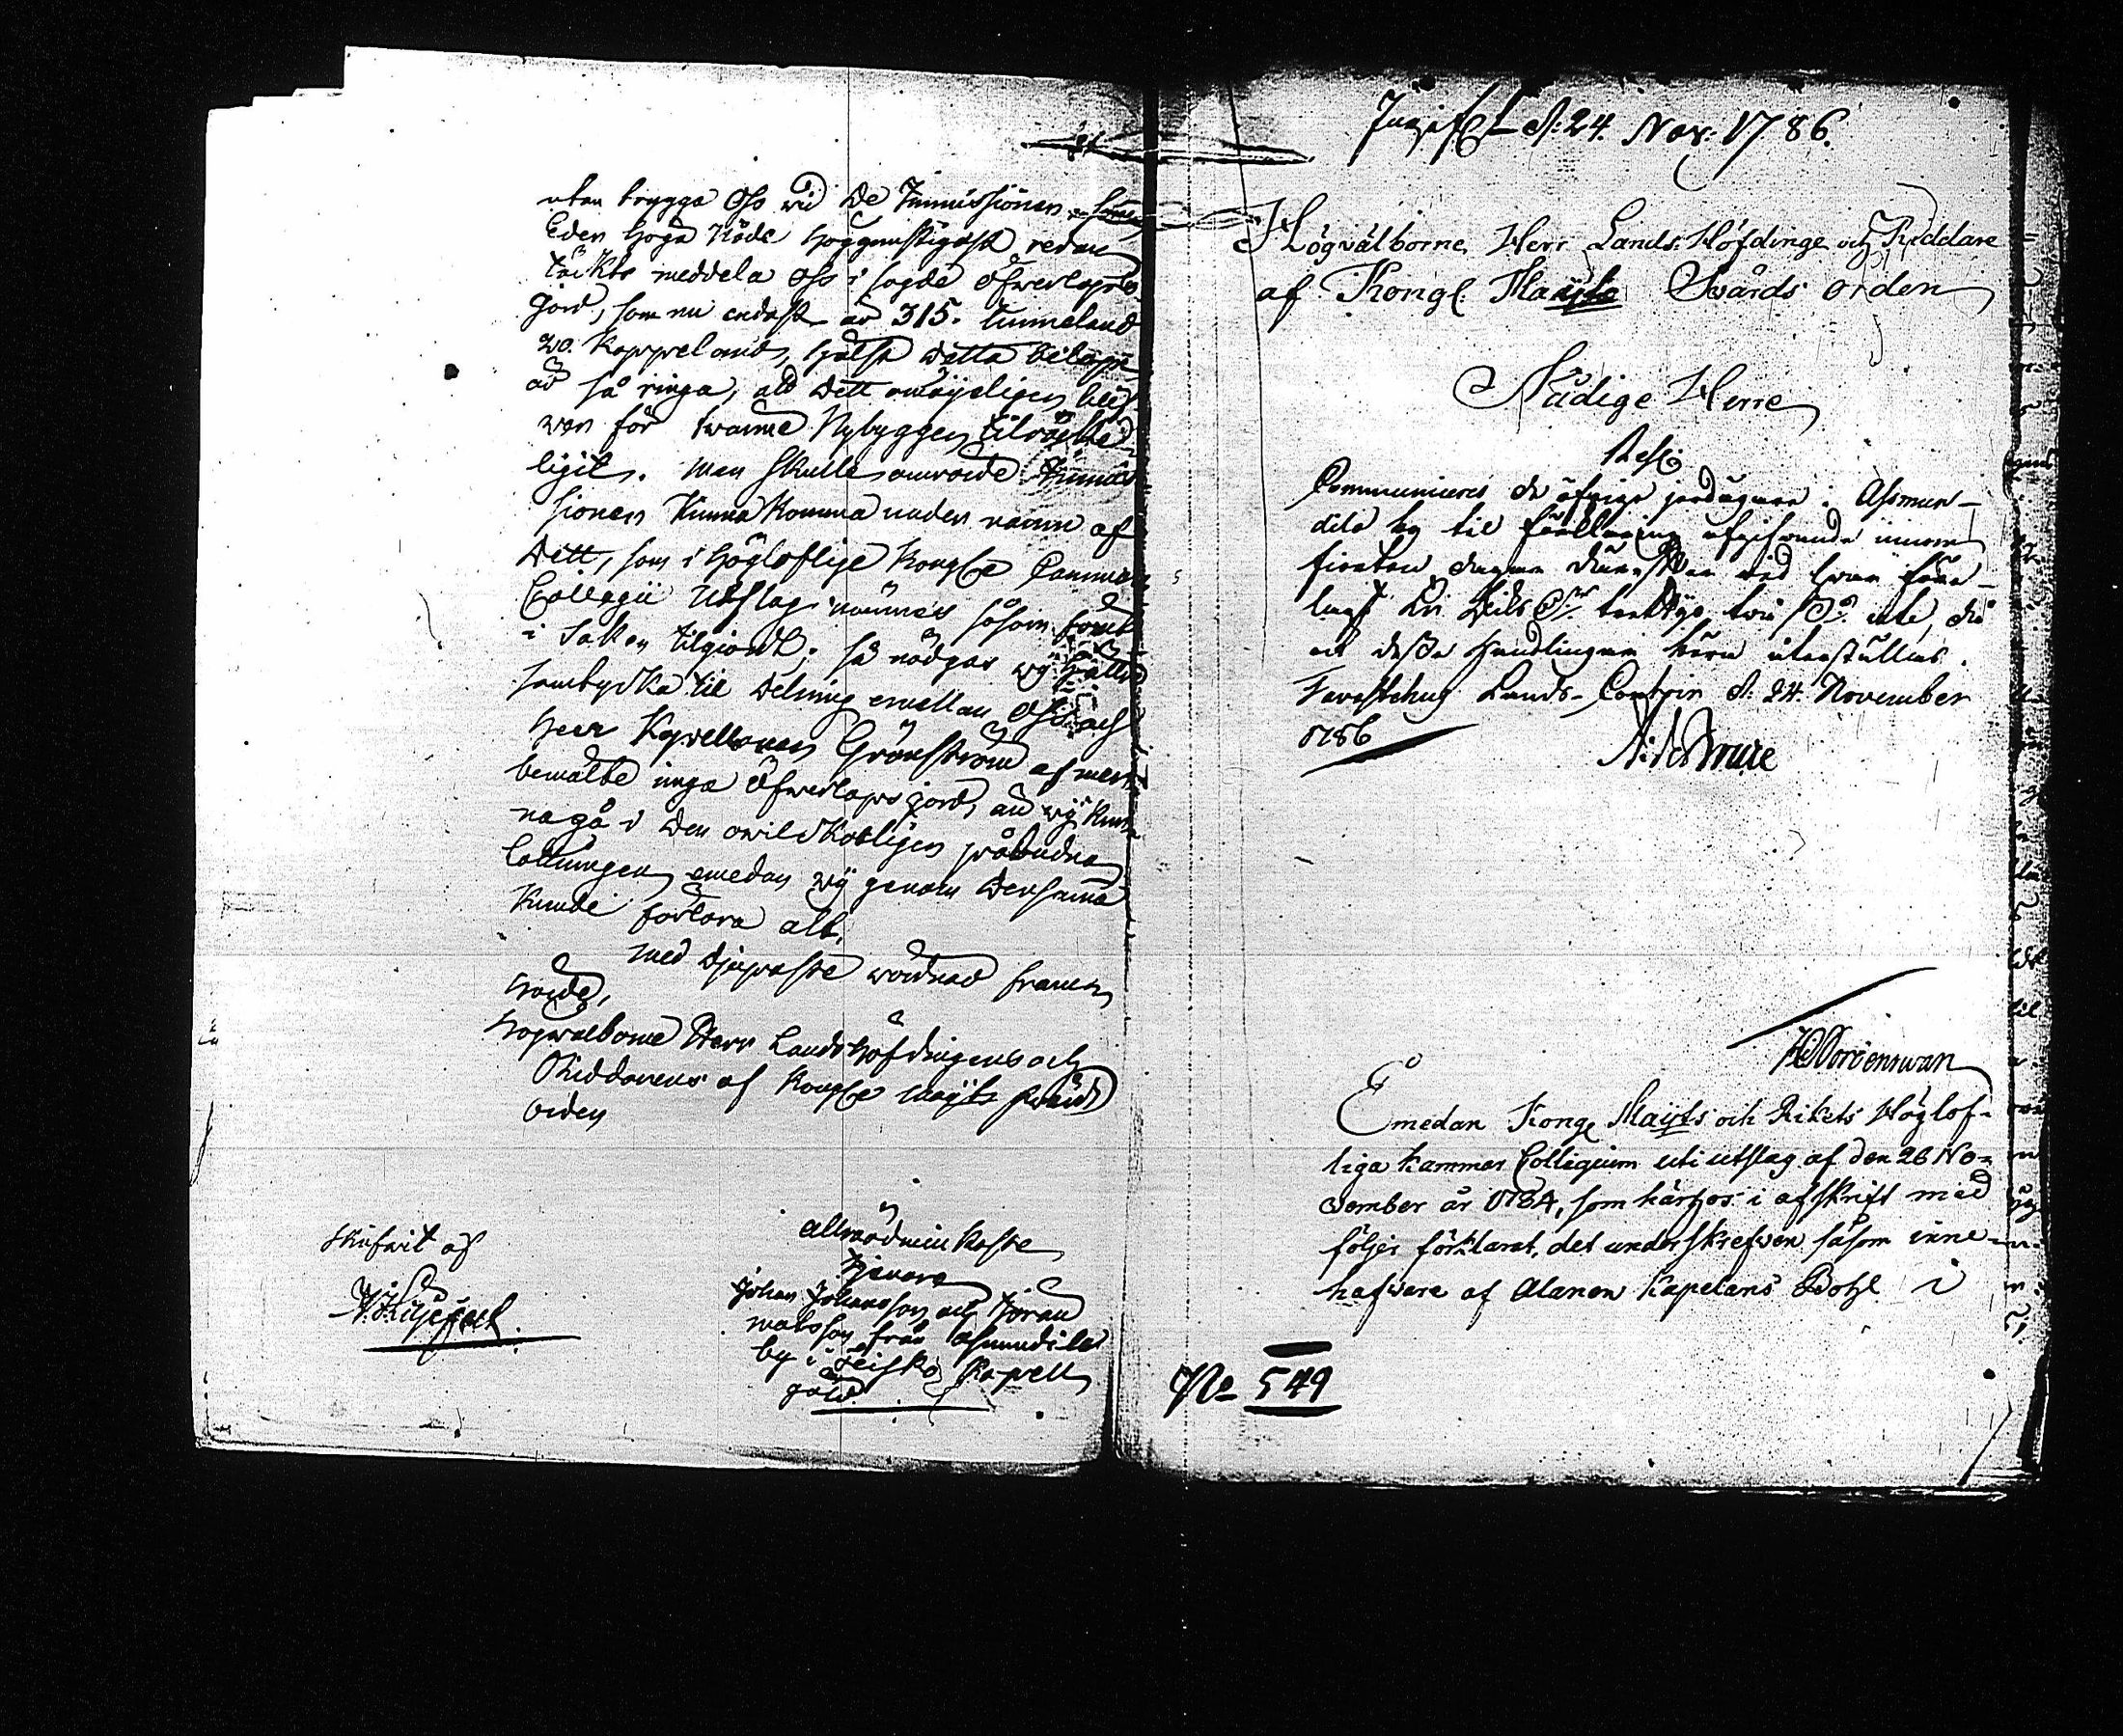 utan trygga Oss vid De Immissionen som
Eders Höga Nåde Höggunstigast redan
täckts meddela Oss i sagde Öfwerlops
jord, som nu endast är 315. tunneland
20. kappeland, hälst detta belopp
är så ringa, att Dett omöijeligen blif
wer för twänne Nybyggen tilräcke-
ligit. Men skulle omrörde Immis
sionen Kunna Komma under namn af
Dett, som i Högloflige Kongl. Cammar
Collegii Utslag nämnes såsom
i Saken tilgiordt; så nödgas wij hällre
samtycka til Delning emellan Oss och
Herr Kapellanen Grönström af mer-
bemälte inga Öfwerlops jord, än wij kun
na gå i den owilkorligen påbudna
lottningen emedan wij genom densamma
Kunde förlora alt,
med djupaste wördnad framm
härda,
Högwälborne Herr Landshöfdingens och
Riddarens af Kongl. Maijts Swärds
Orden
allmödmiukaste
tjenare
Johan Johansson och Jöran
Matsson från Asmundila
by i Teisko Kapell
gäld.
Skrifwit af
Ingifwit d: 24. Nov: 1786.
Högvälborne Herr Lands-Höfdinge och Riddare
af Kongl. Maijts Svärds orden
Nådige Herre
Resol:
Communiceres de öfrige jordägare i Asmun-
dila by til förklaring afgifwande innom
fiorton dagar därefter wid
lagt
at desse Handlingar härn återställas.
Tavastehus Lands-Contoir d: 24. November
1786
Emedan Kongl Maijts och Rikets Höglof-
liga Kammar Collegium uti utslag af den 26 No-
vember år 1784, som härhos i afskrift med
följer förklarat, det underskrefwen såsom inne-
hafware af Alanen Kapelans Bohl i
No 549